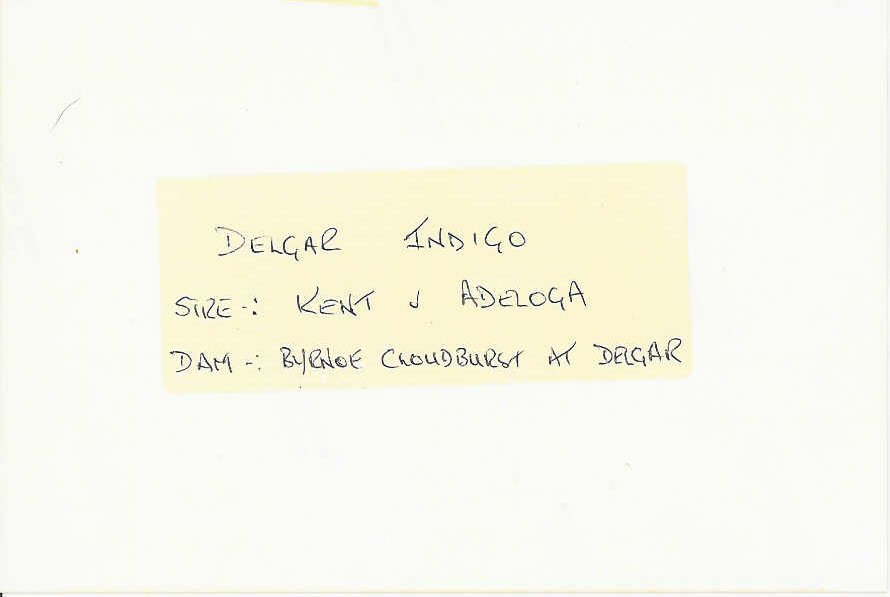 DELGAR INDIGO
SIRE-: KENT J ADELOGA
DAM-: BYRNOE CLOUDBURST AT DELGAR